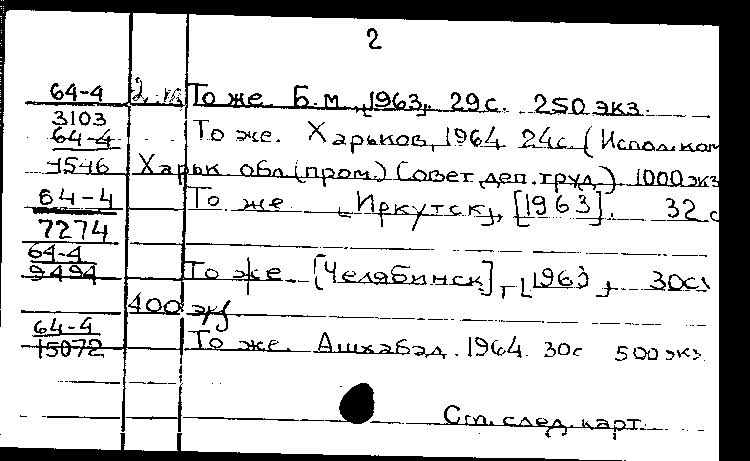 2
64-4 То же. Б.м., [1963]. 29с. 250 экз.
3103
64-4 То же. Харьков, 1964. 24с. (Исполком
1546 Харьк. обл. (пром.) Совет. деп. труд.) 1000 экз
64-4 То же [Иркутск], [1963]. 32с
7274
64-4
9494 То же. [Челябинск], [1963]. 30с.
400 экз
64-4
15072 То же. Ашхабад. 1964. 30с 500 экз.
См. след. карт.